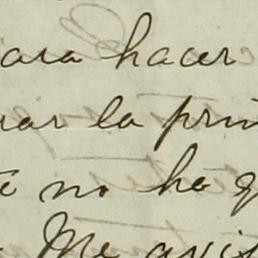 para hacer
rar la prim
no ha q
Me avis